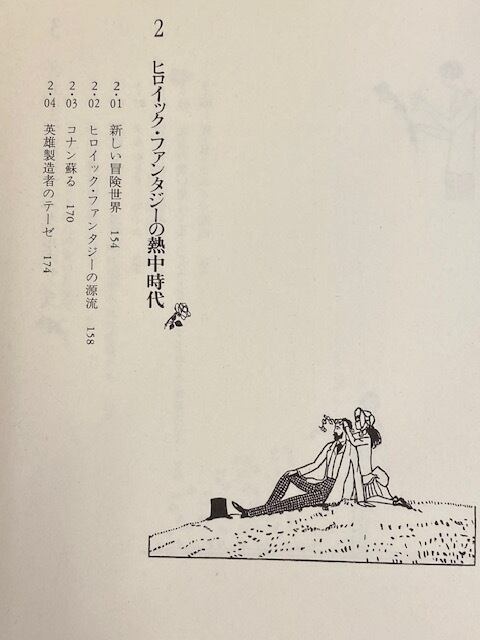 2 ヒロイック・ファンタジーの熱中時代
2・01 新しい冒険世界 154
2・02 ヒロイック・ファンタジーの源流 158
2・03 コナン蘇る 170
2・04 英雄製造者のテーゼ 174